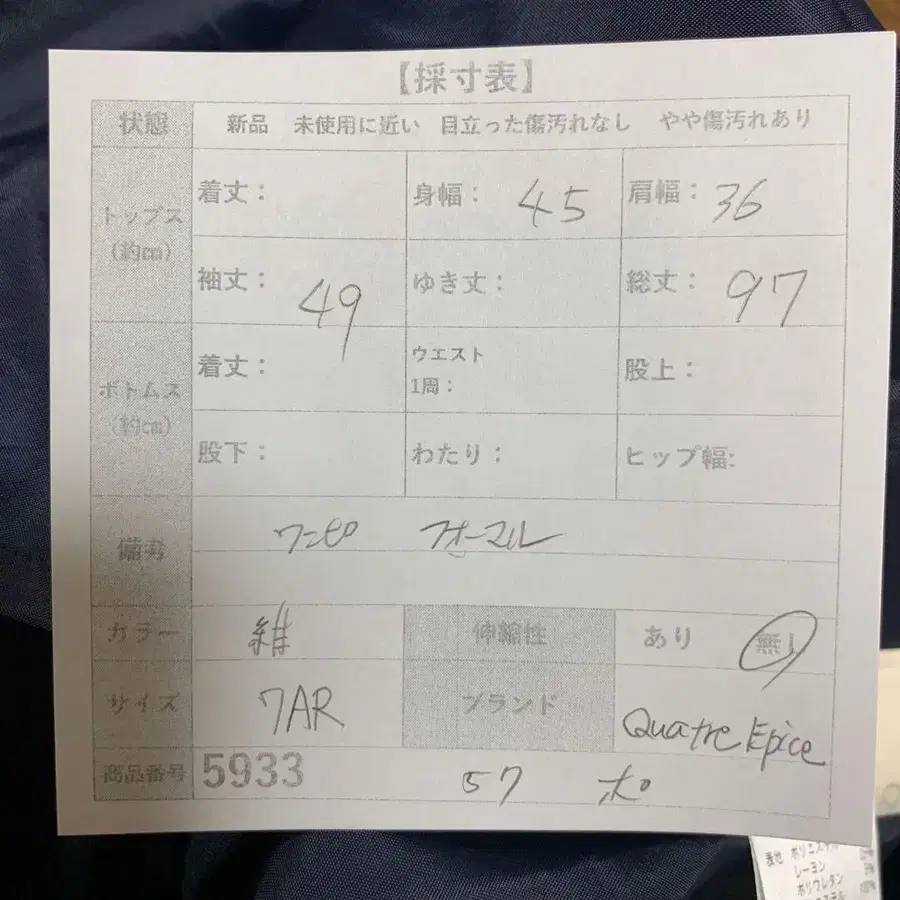 【採寸表】
状態 新品 未使用に近い 目立った傷汚れなし やや傷汚れあり
トップス
(約㎝)
着丈： 身幅： 45 肩幅： 36
袖丈： 49 ゆき丈： 総丈： 97
ボトムス
(約㎝)
着丈： ウエスト
1周： 股上：
股下： わたり： ヒップ幅:
備考 ワンピ フォーマル
カラー 紺 伸縮性 あり 無し
サイズ 7AR ブランド Quatre Epice
商品番号 5933 57 ポ
表地 ポリエステル
レーヨン
ポリウレタン